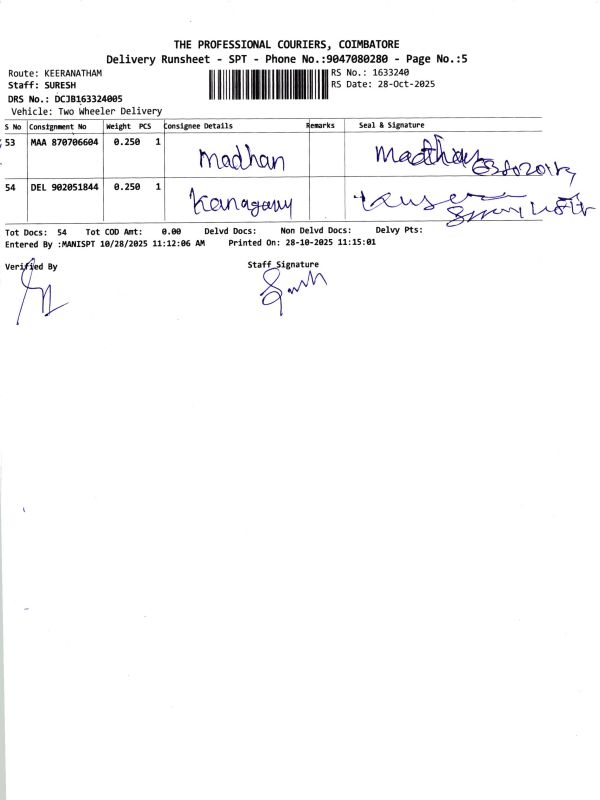 THE PROFESSIONAL COURIERS, COIMBATORE
Delivery Runsheet - SPT - Phone No.:9047080280 - Page No.:5
Route: KEERANATHAM
RS No.: 1633240
Staff: SURESH
RS Date: 28-Oct-2025
DRS No.: DCJB163324005
Vehicle: Two Wheeler Delivery
S No Consignment No Weight PCS Consignee Details Remarks Seal & Signature
53 MAA 870706604 0.250 1 madhan
54 DEL 902051844 0.250 1
Tot Docs: 54 Tot COD Amt: 0.00 Delvd Docs: Non Delvd Docs: Delvy Pts:
Entered By :MANISPT 10/28/2025 11:12:06 AM Printed On: 28-10-2025 11:15:01
Verified By
Staff Signature